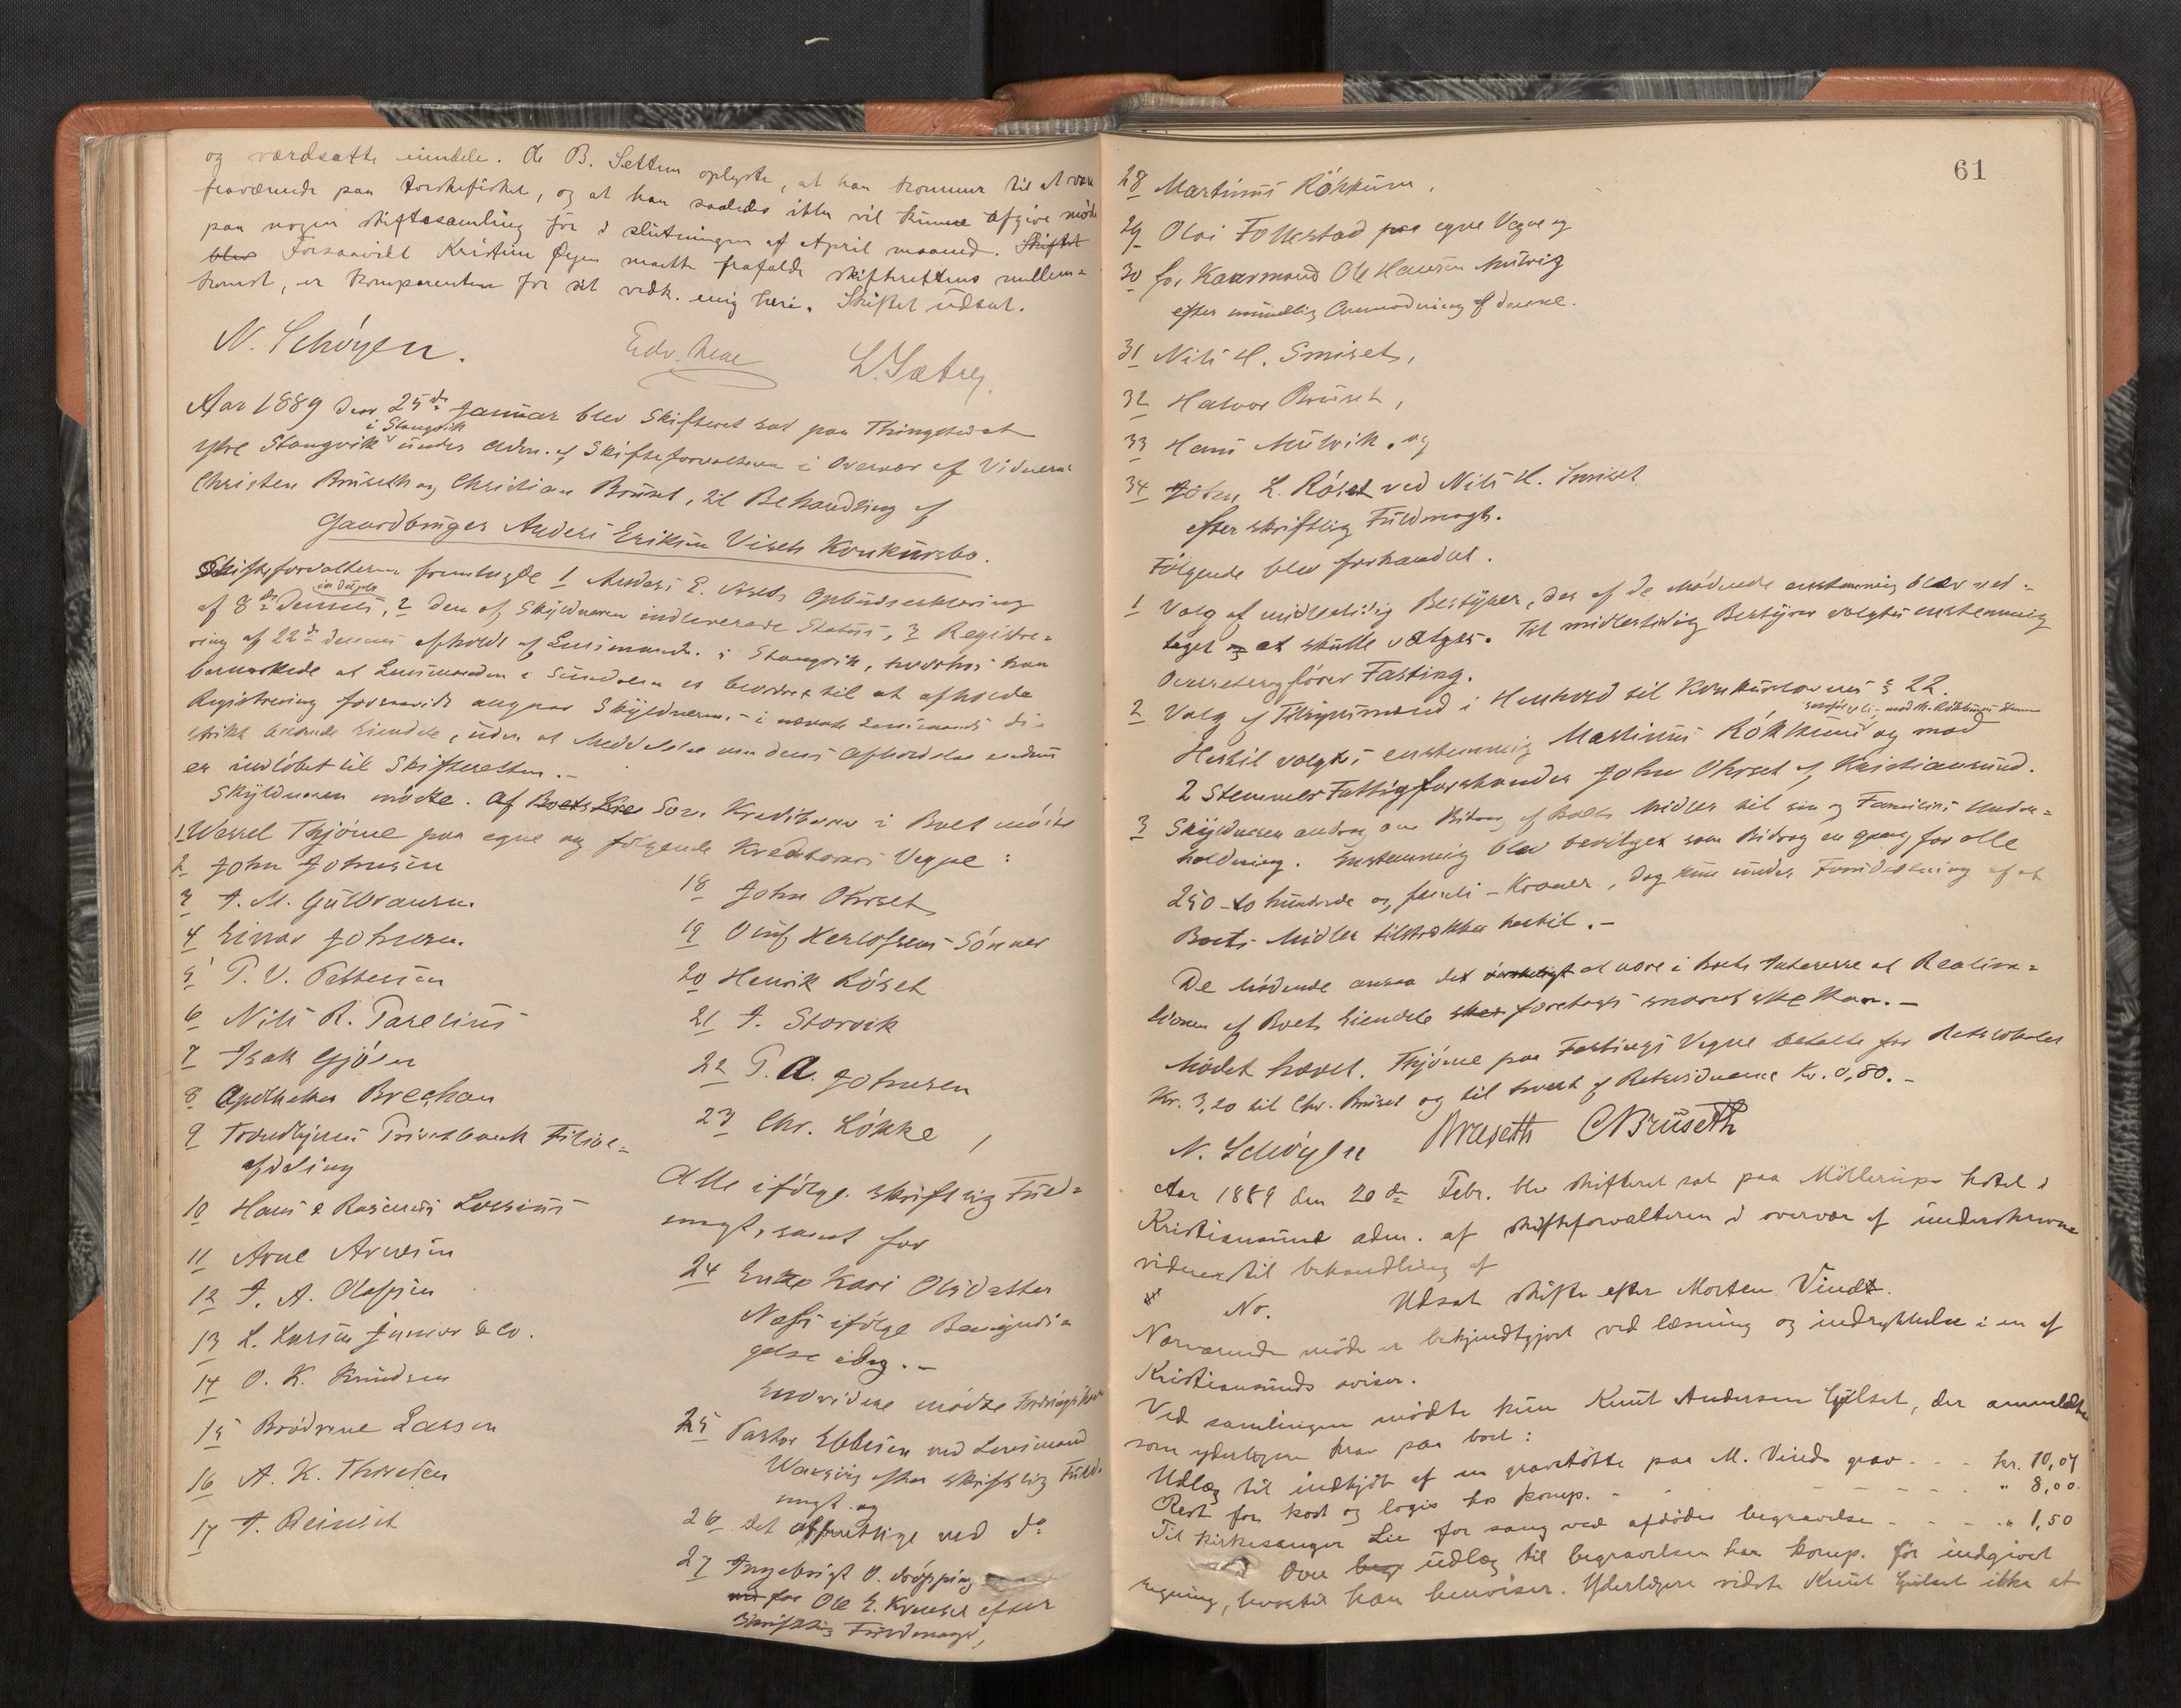 og værdsatte eiendele. Ole B. Settem oplyste, at han kommer til at være
fraværende paa torskefisket, og at han saaledes ikke vil kunne afgive møde
paa nogen skiftesamling før i slutningen af April maaned. Skiftet
blev Forsaavidt Kristine Øyen maatte frafalde skifterettens mellem-
komst, er komparenten for sit vedk. enig heri. Skiftet udsat.
N. Schöyen.
L. Sætrej
Aar 1889 den 25de Januar blev Skifteret sat paa Thingstedet
i Stangvik
ytre Stangvik under Adm. af Skifteforvalteren i Overvær af Vidnerne
Christen Brüseth og Christian Brüset, til Behandling af
Gaardbruger Anders Eriksen Viseth Konkursbo.
Skifteforvalteren fremlagde 1 Anders E. Viseths Opbudserklæring
af 8de dennes, 2 den af Skyldneren indleverede Status, 3 Registre-
ring af 22de dennes afholdt af Lensmanden i Stangvik, hvorhos han
bemærkede at Lensmanden i Sundalen er beordret til at afholde
Registrering forsaavidt angaar Skyldnerens i nævnte Lensmands di-
strikt værende Eiendele, uden at Meddelelse om dens Afholdelse endnu
er indløbet til Skifteretten.-
Skyldneren mødte. Af Boets Kre Som Kreditorer i Boet mødte
1. Wessel Thjöme paa egne og følgende Kreditorers Vegne:
2 John Johnsen
3 A. M. Gulbransen.
4 Einar Johnsen.
5 P. V. Pettersen
6 Nils R. Parelius
7 Isak Gjøen
8 Apotheker Brechan
9 Trondhjems Privatbank Filial-
afdeling
10 Hans & Rasmus Lossius
11 Arne Arnesen
12 J. A. Olafsen
13 L. Larsen Junior & Co.
14 O. K. Knudsen
15 Brødrene Larsen
16 A. K. Thoresen
17 J. Reinsch
18 John Ohrset
19 Oluf Herlofsens Sønner
20 Henrik Röset
21 A. Storvik
22 P. A. Johnsen
23 Chr. Lökke,
Alle ifølge skriftlig Fuld-
magt, samt for
24 Enke Kari Olsdatter
Næss ifølge Bemyndi-
gelse idag.-
Endvidere mødte Fordringshavere
25 Pastor Ebbesen ved Lensmand
efter skriftlig Fuld-
magt og
26 Det offentlige ved do
27 Ingebrigt O. Dröpping
ved for Ole E. Kvenset efter
skriftlig Fuldmagt,
61
28 Martinus Rökkum,
29 Olai Follestad paa egne Vegne og
30 for Kaarmand Ole Hansen Mulvig
efter mundtlig Anmodning af denne.
31 Nils H. Smiset,
32 Halvor Brüset,
33 Hans Mulvik. og
34 John L. Röset ved Nils H. Smiset
efter skriftlig Fuldmagt.
Følgende blev forhandlet.
1 Valg af midlertidig Bestyrer, der af de Mødende enstemmig blev ved-
taget og at skulle vælges. Til midlertidig Bestyrer valgtes enstemmig
Overretssagfører Fasting.
2 Valg af Tilsynsmænd i Henhold til Konkurslovens § 22.
Hertil valgtes enstemmig Martinus Rökkum og mod
2 Stemmer Fattigforstander John Ohrset af Kristiansund.
3 Skyldneren androg om Bidrag af Boets Midler til sin og Familiens Under-
holdning. Enstemmig blev bevilget som Bidrag en gang for alle
250 - to hundrede og femti - Kroner, dog kun under Forudsætning af at
Boets Midler tilstrækker hertil.-
De Mødende ansaa det at være i Boets Interesse at Realisa-
tionen af Boets Eiendele sker foretages snarest ske kan.-
Mødet hævet. Thjöme paa Fastings Vegne betalte for Retslokalet
Kr. 3,20 til Chr. Brüset og til hvert af Retsvidnerne Kr. 0,80.-
N. Schöyen Brüseth CBrüseth
Aar 1889 den 20de Febr. blev skifteret sat paa Möllerups hotel i
Kristiansund adm. af skifteforvalteren i overvær af underskrevne
vidner til behandling af
No. Udsat skifte efter Morten Vindt.
Nærværende møde er bekjendtgjort ved læsning og indrykkelse i en af
Kristiansunds aviser.
Ved samlingen mødte kun Knut Andersen Gylset, der anmeldte
som yderligere krav paa boet:
Udlæg til indkjøb af en gravstøtte paa M. Vinds grav - - - kr. 10,04
Rest for kost og logis hos komp. - - - - " 8,00.
Til kirkesanger Lie for sang ved afdødes begravelse - - - - " 1,50
Over beg udlæg til begravelsen har komp. før indgivet
regning, hvortil han henviser. Yderligere vidste Knut Gylset ikke at